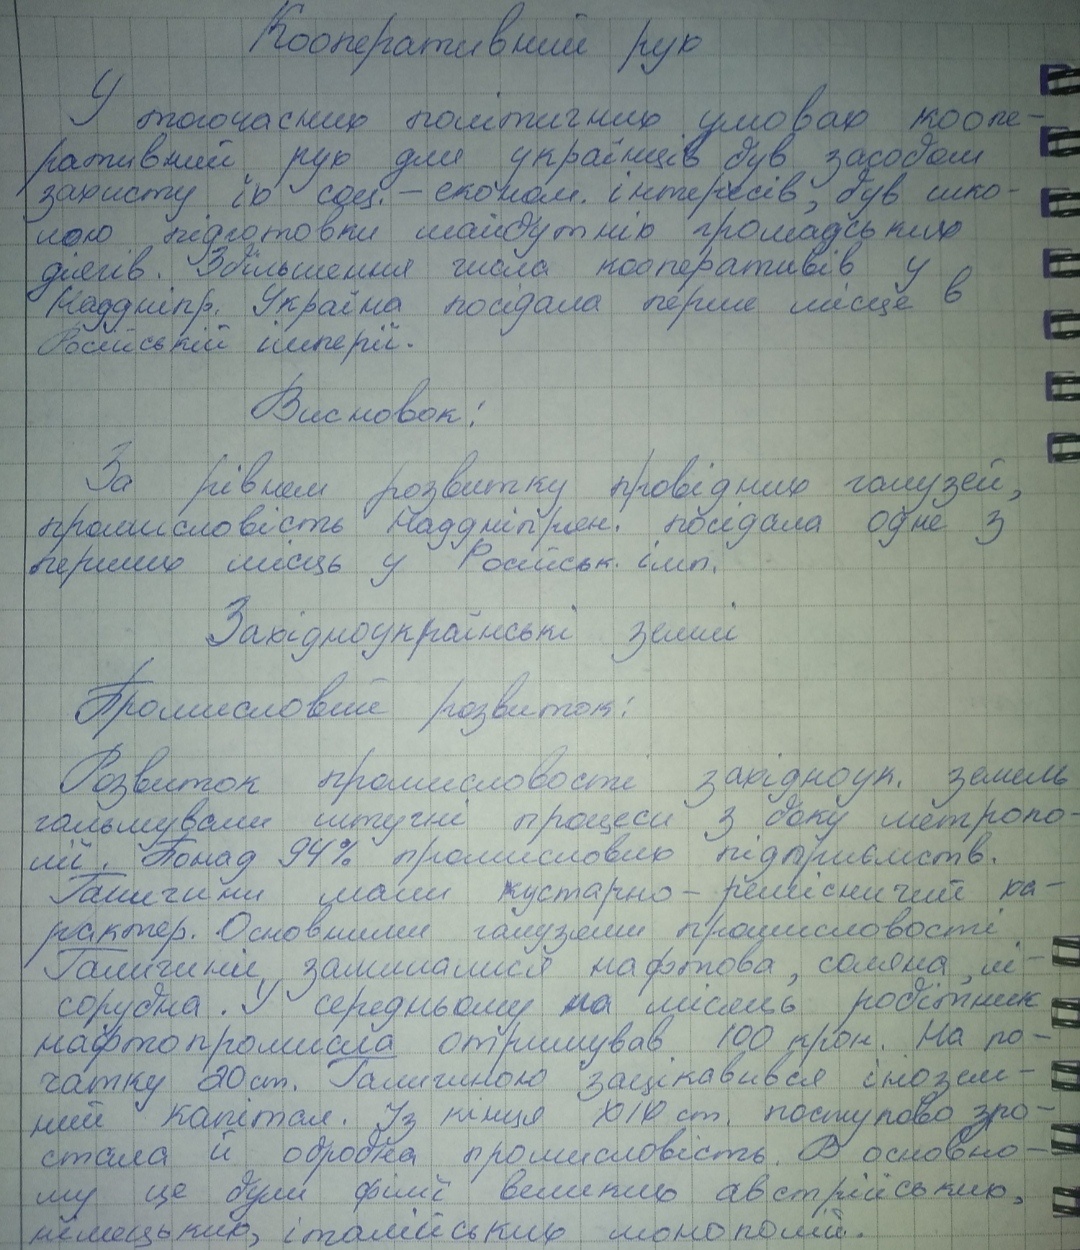 Кооперативний рух
У тогочасних політичних умовах коопе-
ративний рух для українців був засобом
захисту їх соц.-економ. інтересів, був шко-
лою підготовки майбутніх громадських
діячів. Збільшення числа кооперативів у
Наддніпр. Україна посідала перше місце в
Російській імперії.
Висновок:
За рівнем розвитку провідних галузей,
промисловість Наддніпрян. посідала одне з
перших місць у Російськ. імп.
Західноукраїнські землі
Промисловий розвиток:
Розвиток промисловості західноук. земель
гальмували штучні процеси з боку метропо-
лії. Понад 94% промислових підприємств.
Галичини мали кустарно-ремісничий ха-
рактер. Основними галузями промисловості
Галичини залишалися нафтова, соляна, лі-
сорубна. У середньому на місяць робітник
нафтопромисла отримував 100 крон. На по-
чатку 20 ст. Галичиною зацікавився інозем-
ний капітал. Із кінця XIX ст. поступово зро-
стала й обробна промисловість. В основно-
му це були філії великих австрійських,
німецьких, італійських монополій.